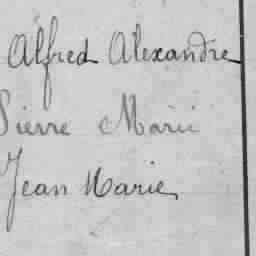 Alfred Alexandre
Pierre Marie
Jean Marie